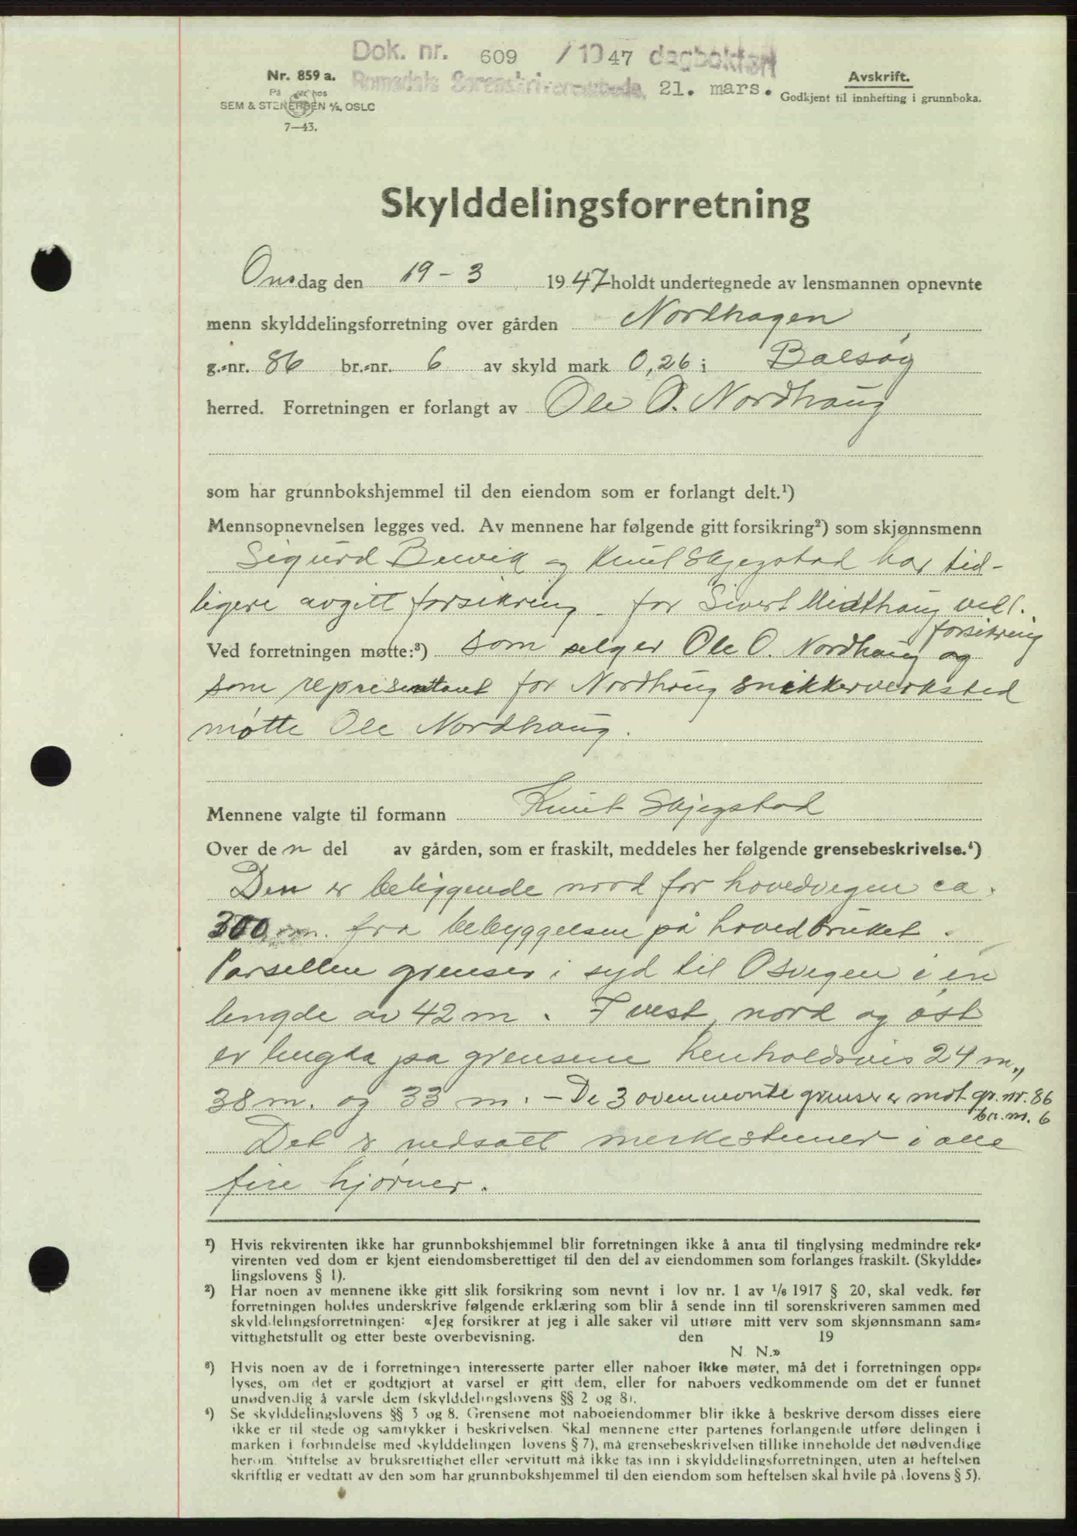 Dok. nr. 609 / 1947 dagbokført
Romsdals Sorenskriverembede, 21. mars.
Nr. 859 a.
På hos
SEM & STENERSEN A/S, OSLO
7—43.
Avskrift.
Godkjent til innhefting i grunnboka.
Skylddelingsforretning
Onsdag den 19 - 3 1947 holdt undertegnede av lensmannen opnevnte
menn skylddelingsforretning over gården Nordhagen
g.-nr. 86 br.-nr. 6 av skyld mark 0,26 i Bolsøy
herred. Forretningen er forlangt av Ole O. Nordhaug
som har grunnbokshjemmel til den eiendom som er forlangt delt.¹)
Mennsopnevnelsen legges ved. Av mennene har følgende gitt forsikring²) som skjønnsmenn
Sigurd Bervik og Knut Skjegstad har tid-
ligere avgitt forsikring. for Sivert Midthaug vedl.
forsikring
Ved forretningen møtte:³) som selger Ole O. Nordhaug og
som representant for Nordhaug snikkerverksted
møtte Ole Nordhaug.
Mennene valgte til formann Knut Skjegstad
Over den del av gården, som er fraskilt, meddeles her følgende grensebeskrivelse.⁴)
Den er beliggende nord for hovedvegen ca.
300 m. fra bebyggelsen på hovedbruket.
Parsellen grenser i syd til Osvegen i en
lengde av 42 m. I vest, nord og øst
er lengda på grensene henholdsvis 24 m.,
38 m. og 33 m. – De 3 ovennevnte grenser er mot gr. nr. 86
br. nr. 6
Det er nedsatt merkestener i alle
fire hjørner.
¹) Hvis rekvirenten ikke har grunnbokshjemmel blir forretningen ikke å anta til tinglysing medmindre rek-
virenten ved dom er kjent eiendomsberettiget til den del av eiendommen som forlanges fraskilt. (Skyldde-
lingslovens § 1).
²) Har noen av mennene ikke gitt slik forsikring som nevnt i lov nr. 1 av ¹/₆ 1917 § 20, skal vedk. før
forretningen holdes underskrive følgende erklæring som blir å sende inn til sorenskriveren sammen med
skylddelingsforretningen: «Jeg forsikrer at jeg i alle saker vil utføre mitt verv som skjønnsmann sam-
vittighetsfullt og etter beste overbevisning. den 19
N. N.»
³) Hvis noen av de i forretningen interesserte parter eller naboer ikke møter, må det i forretningen opp-
lyses, om det er godtgjort at varsel er gitt dem, eller for naboers vedkommende om det er funnet
unødvendig å varsle dem (skylddelingslovens §§ 2 og 8).
⁴) Se skylddelingslovens §§ 3 og 8. Grensene mot naboeiendommer blir ikke å beskrive dersom disses eiere
ikke er til stede og samtykker i beskrivelsen. Skal mennene etter partenes forlangende utføre delingen i
marken i forbindelse med skylddelingen (lovens § 7), må grensebeskrivelsen tillike inneholde det nødvendige
herom. Stiftelse av bruksrettighet eller servitutt må ikke tas inn i skylddelingsforretningen, uten at heftelsen
skriftlig er vedtatt av den som har grunnbokshjemmel til den eiendom som heftelsen skal hvile på (lovens § 5).